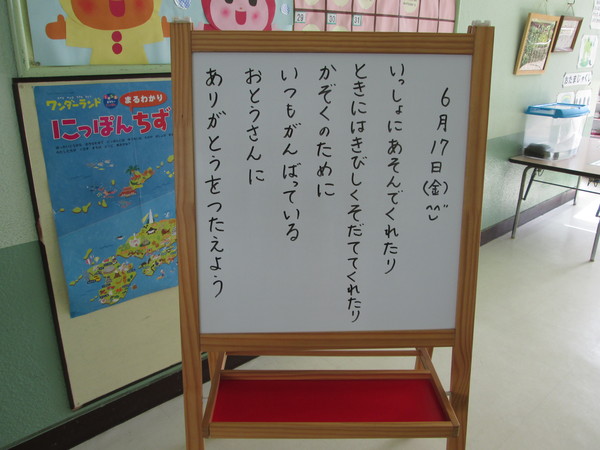 6月17日(金)^^
いっしょにあそんでくれたり
ときにはきびしくそだててくれたり
かぞくのために
いつもがんばっている
おとうさんに
ありがとうをつたえよう
ワンダーランド
まるわかり
にっぽんちず
29
30
31
おたまじゃくし